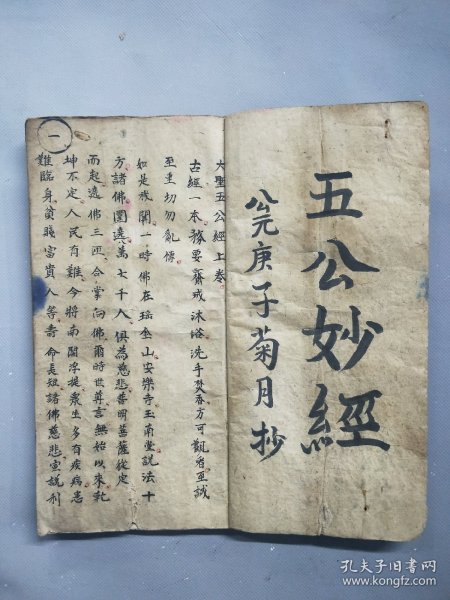 五公妙經
公元庚子菊月抄
大聖五公經上卷
古經一本務要齋戒沐浴洗手焚香方可觀看至誠
至重切勿亂傳
如是我聞一時佛在瑤奎山安樂寺玉甫堂說法十
方諸佛圍遶萬七千人俱為慈悲普明菩薩從定
而起遶佛三匝合掌向佛爾時世尊言無始以來乾
坤不定人民有難今將南閻浮提衆生多有疾病患
難臨身貧賤富貴人等壽命長短諸佛慈悲宣說利
一
孔夫子旧书网
www.kongfz.com